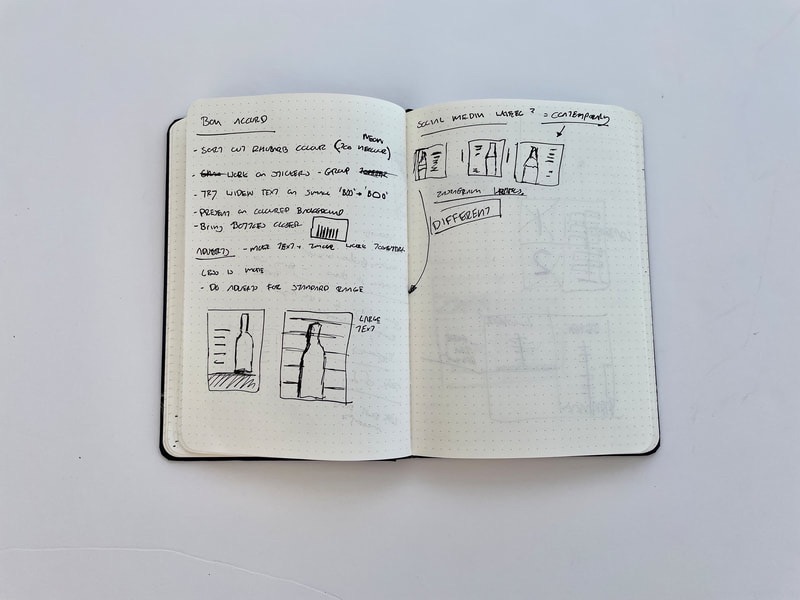 BON ACCORD
- SORT OUT RHUBARB COLOUR (TOO MELLOW)
NEON
- WORK ON STICKERS - GROUP
- TRY WIDEN TEXT ON
- PRESENT ON COLOURED BACKGROUND
- BRING BOTTLES CLOSER
ADVERTS - MAKE TEXT + IMAGE WORK TOGETHER
LESS IS MORE
- DO ADVERT FOR STANDARD RANGE
LARGE
TEXT
SOCIAL MEDIA ? = CONTEMPORARY
INSTAGRAM
DIFFERENT